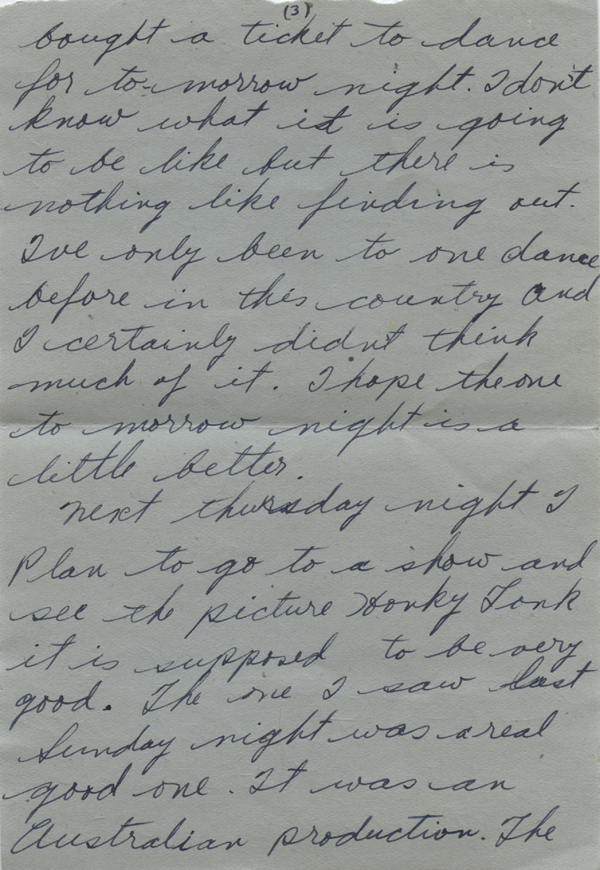 (3)
bought a ticket to dance
for to-morrow night. I don't
know what it is going
to be like but there is
nothing like finding out.
I've only been to one dance
before in this country and
I certainly didn't think
much of it. I hope the one
to morrow night is a
little better.
Next thursday night I
Plan to go to a show and
see the picture Honky Tonk
it is supposed to be very
good. The one I saw last
Sunday night was a real
good one. It was an
Australian production. The